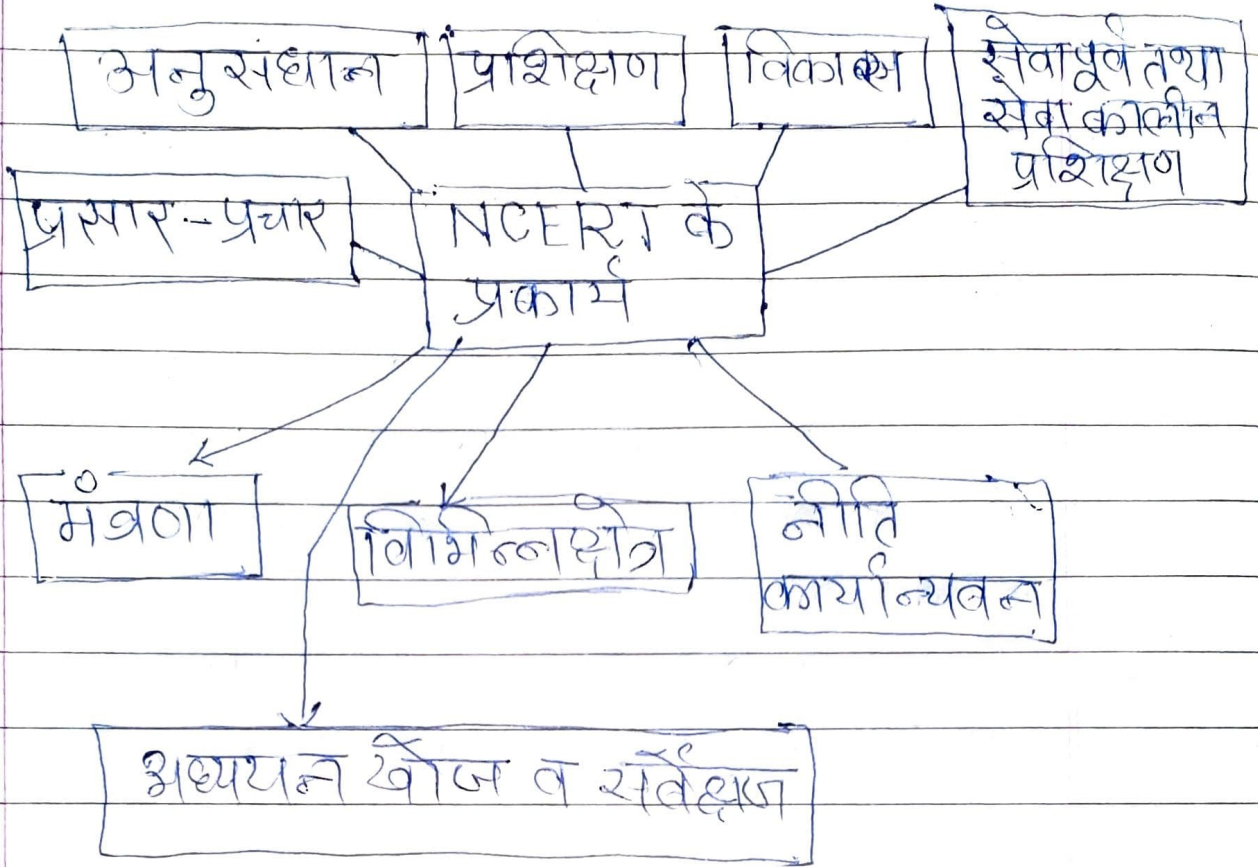 अनुसंधान
प्रशिक्षण
विकास
सेवापूर्व तथा
सेवा कालीन
प्रशिक्षण
प्रसार-प्रचार
NCERT के
प्रकार्य
मंत्रणा
विभिन्नक्षेत्र
नीति
कार्यान्यवन
अध्ययन खोज व सर्वेक्षण